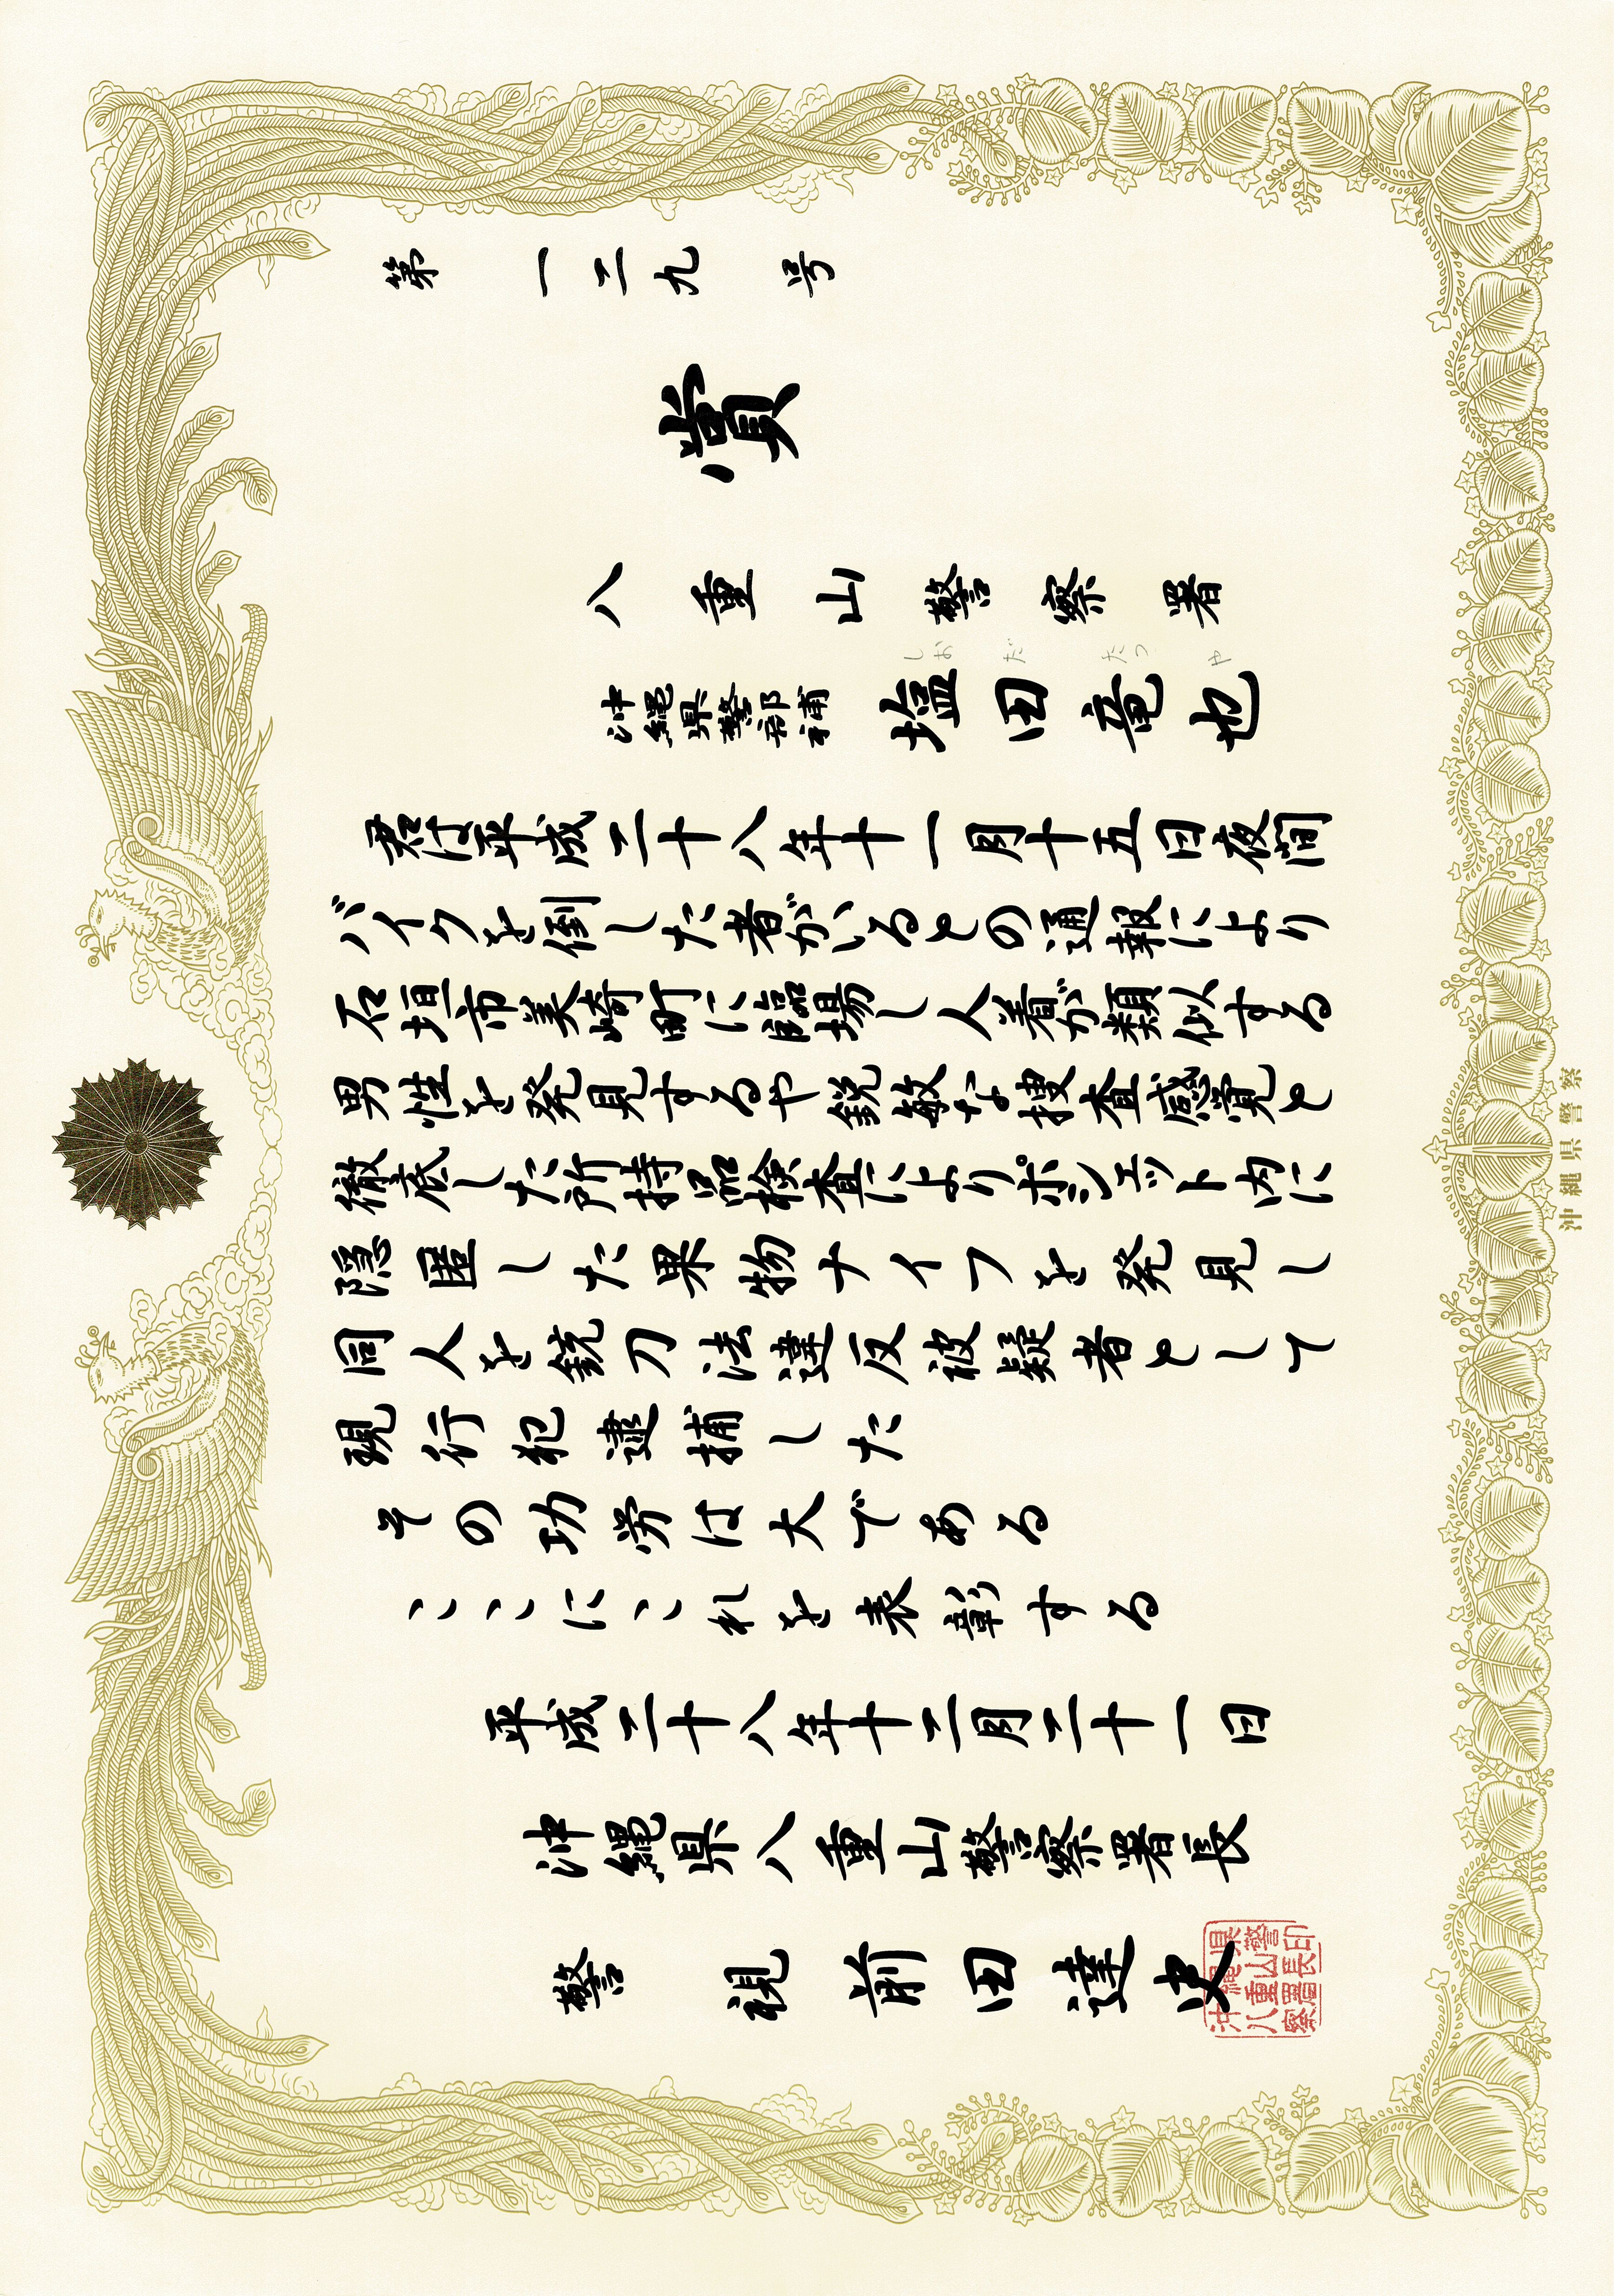 第一二九号
賞
八重山警察署
しおだたつや
沖縄県警部補 塩田竜也
君は平成二十八年十一月十五日夜間
バイクを倒した者がいるとの通報により
石垣市美崎町に臨場し人着が類似する
男性を発見するや鋭敏な捜査感覚と
徹底した所持品検査によりポシェット内に
隠匿した果物ナイフを発見し
同人を銃刀法違反被疑者として
現行犯逮捕した
その功労は大である
ここにこれを表彰する
平成二十八年十二月二十一日
沖縄県八重山警察署長
警視 前田達史
沖縄県
八重山警
察署長印
沖縄県警察